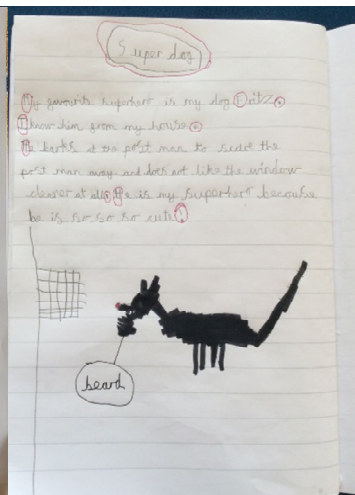 Super dog
My favourite superhero is my dog Fritz.
I know him from my house.
He barks at the post man to scare the
post man away and does not like the window
cleaner at all. He is my superhero because
he is so so so cute!
beard